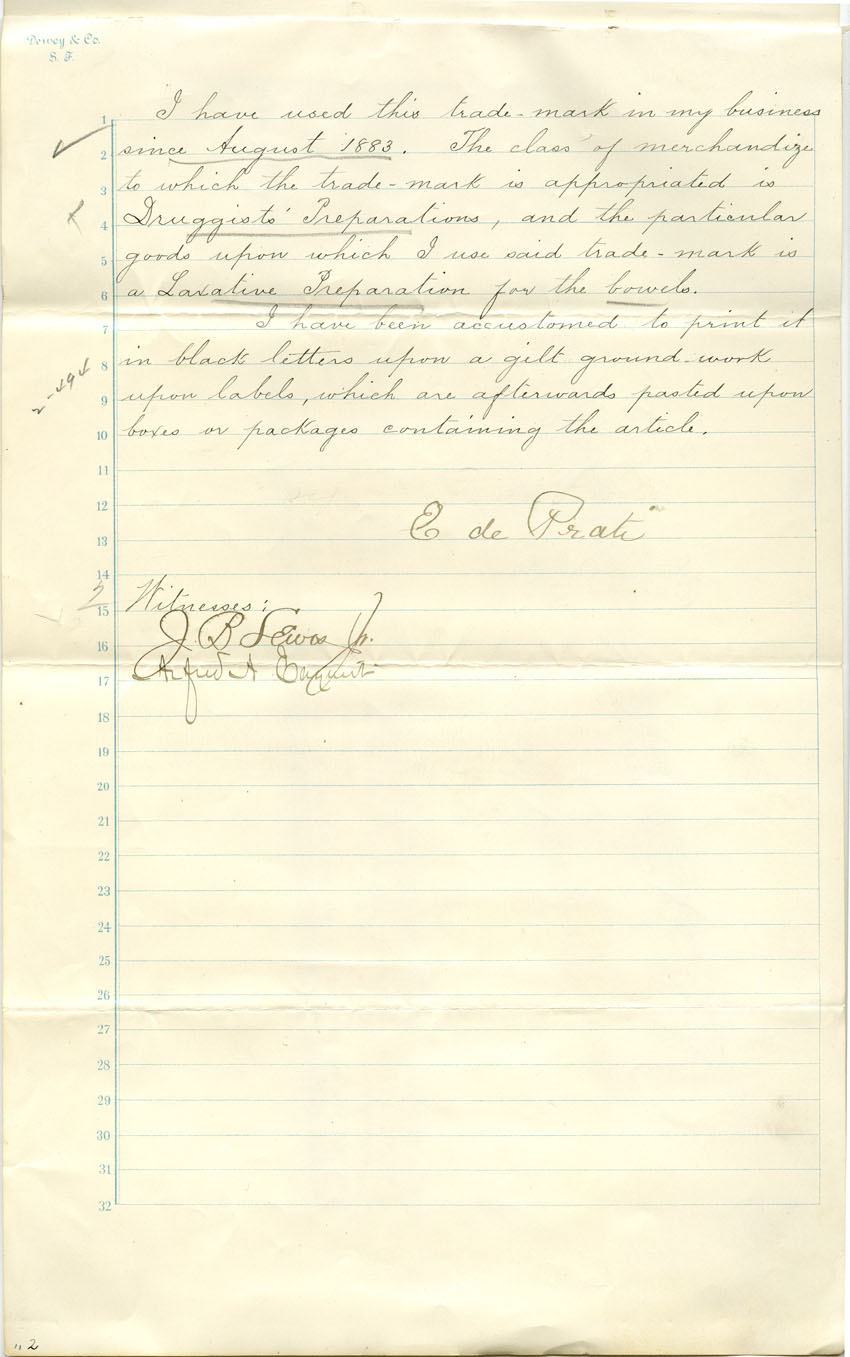 Dewey & Co.
S. F.
I have used this trade-mark in my business
1
since August 1883. The class of merchandize
2
to which the trade-mark is appropriated is
3
Druggists' Preparations, and the particular
4
goods upon which I use said trade-mark is
5
a Laxative Preparation for the bowels.
6
I have been accustomed to print it
7
in black letters upon a gilt ground-work
8
2-494
upon labels, which are afterwards pasted upon
9
boxes or packages containing the article.
10
11
12
E de Prati
13
14
2 Witnesses:
15
J B Lewis Jr.
16
Alfred A
17
18
19
20
21
22
23
24
25
26
27
28
29
30
31
32
"2